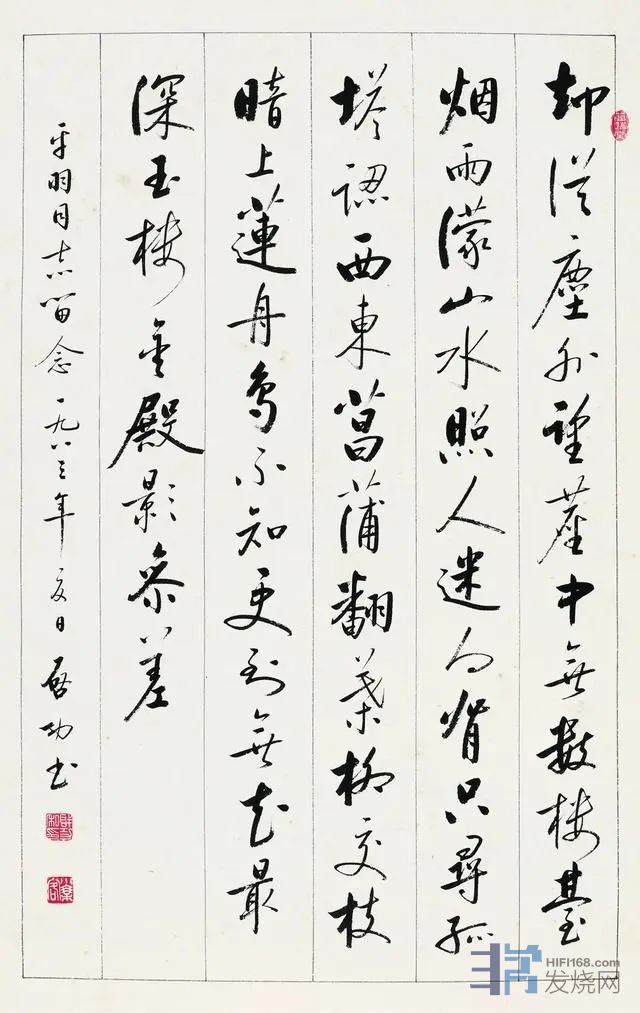 却從塵外望塵中無數楼臺
烟雨濛山水照人迷向背只尋孤
塔認西東菖蒲翻葉柳交枝
暗上蓮舟鳥不知更到無花最
深玉楼金殿影參差
平羽同志留念一九八三年夏日啓功书
HIFI168.com
发烧网